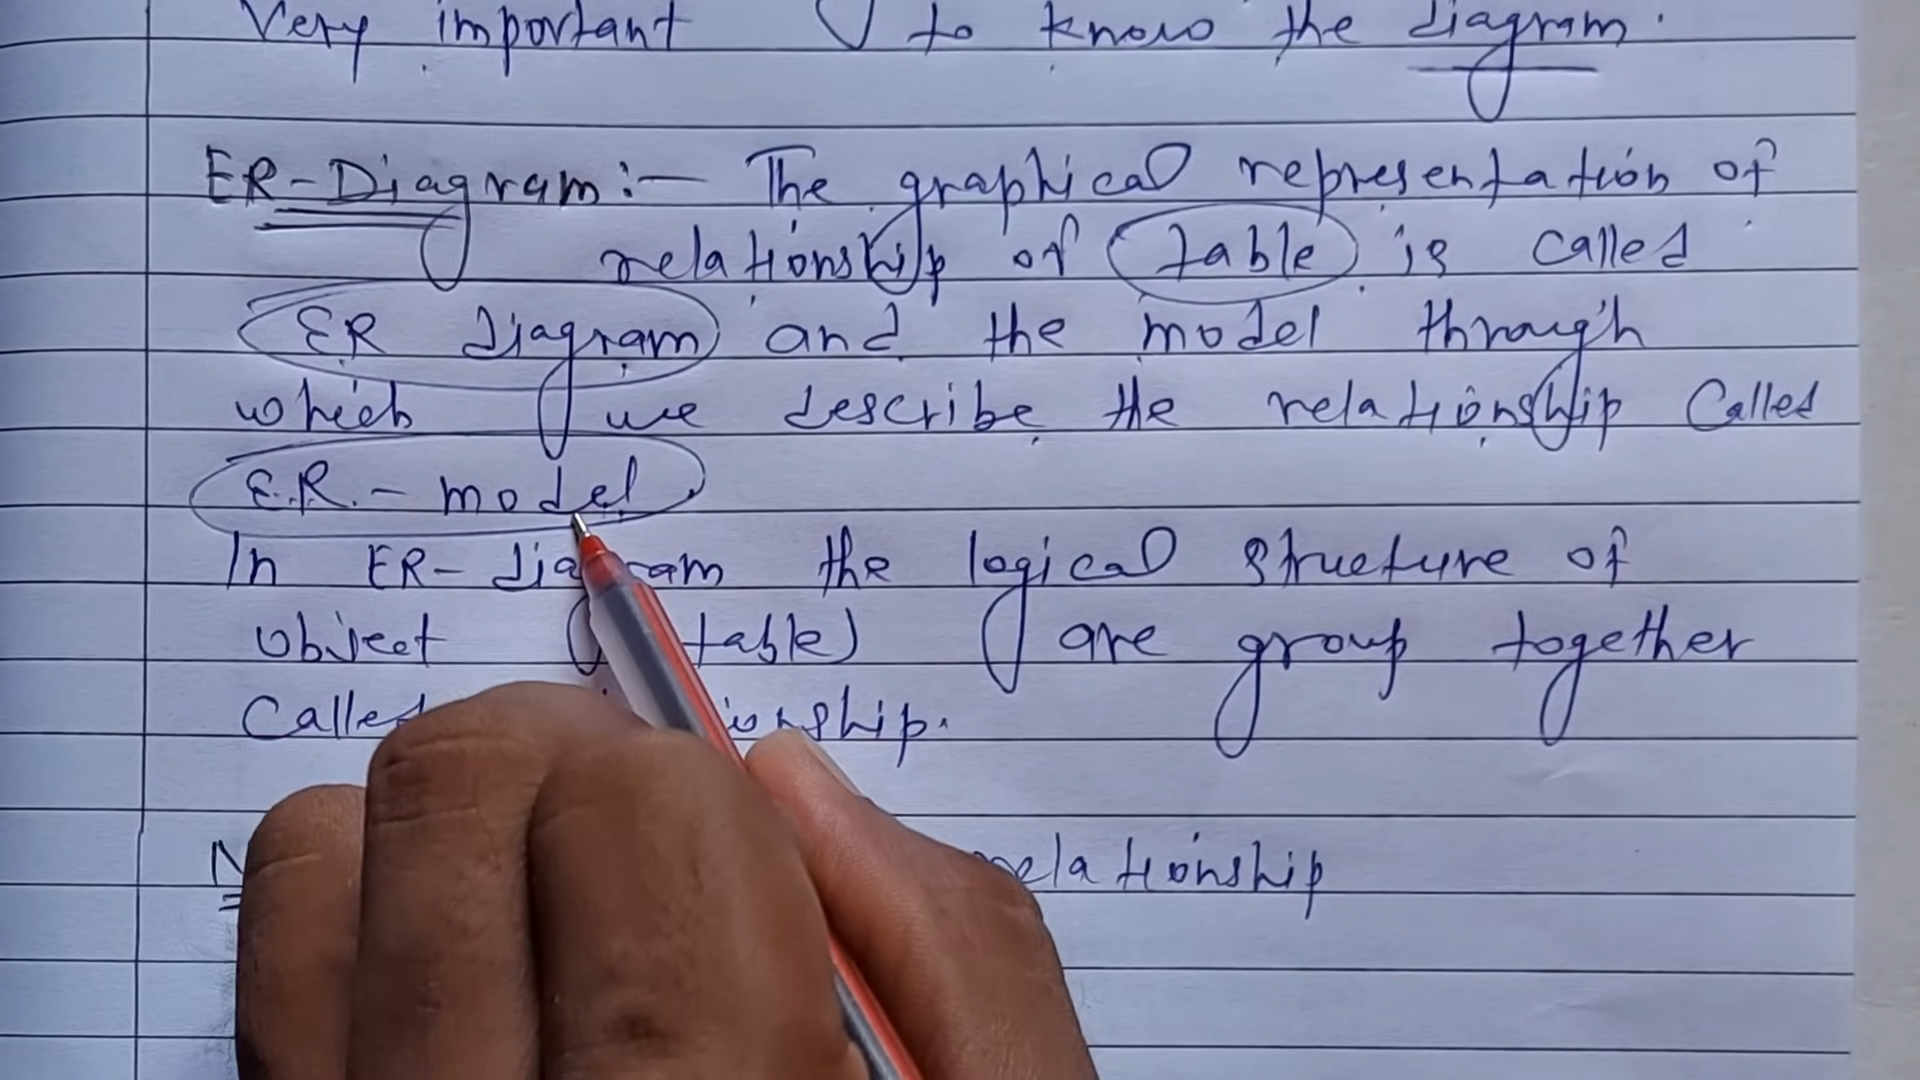 Very important to know the diagram.
ER-Diagram:- The graphical representation of
relationship of table is called
ER diagram and the model through
which we describe the relationship Called
E.R.-model
In ER-diagram the logical structure of
object table) are group together
Called
relationship